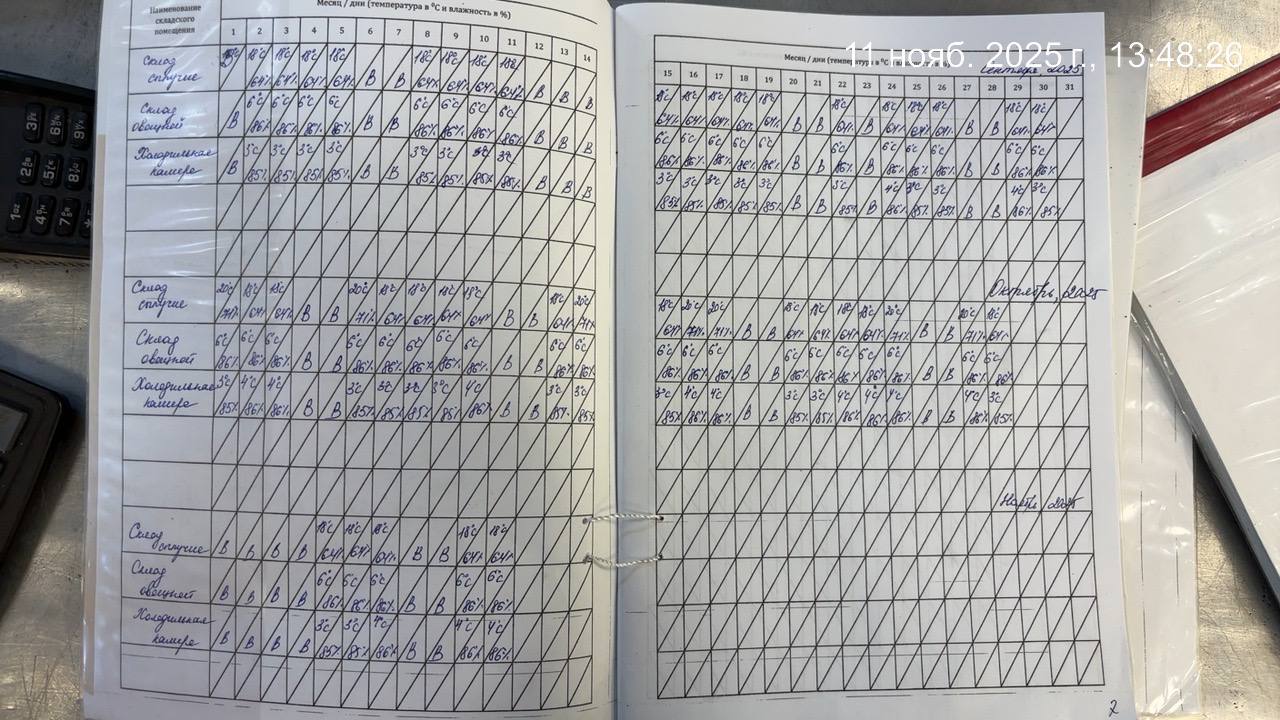 Наименование складского помещения
Месяц / дни (температура в °С и влажность в %)
1 2 3 4 5 6 7 8 9 10 11 12 13 14
Склад сыпучие
18°С 18°С 18°С 18°С 18°С 18°С 18°С 18°С
64% 64% 64% 64% В В 64% 64% 64% 64% В В В
Склад овощной
6°С 6°С 6°С 6°С 6°С 6°С 6°С 6°С
В 86% 86% 86% 86% В В 86% 86% 86% 86% В В В
Холодильная камера
3°С 3°С 3°С 3°С 3°С 3°С 3°С 3°С
В 85% 85% 85% 85% В В 85% 85% 85% 85% В В В
Склад сыпучие
20°С 18°С 18°С 20°С 18°С 18°С 18°С 18°С 18°С 20°С
71% 64% 64% В В 71% 64% 64% 64% 64% В В 64% 71%
Склад овощной
6°С 6°С 6°С 6°С 6°С 6°С 6°С 6°С 6°С 6°С
86% 86% 86% В В 86% 86% 86% 86% 86% В В 86% 86%
Холодильная камера
3°С 4°С 4°С 3°С 3°С 3°С 3°С 4°С 3°С 3°С
85% 86% 86% В В 85% 85% 85% 85% 86% В В 85% 85%
Склад сыпучие
18°С 18°С 18°С 18°С 18°С
В В В В 64% 64% 64% В В 64% 64%
Склад овощной
6°С 6°С 6°С 6°С 6°С
В В В В 86% 86% 86% В В 86% 86%
Холодильная камера
3°С 3°С 4°С 4°С 4°С
В В В В 85% 85% 86% В В 86% 86%
11 нояб. 2025 г., 13:48:26
Месяц / дни (температура в °С и влажность в %)
Сентябрь 2025
15 16 17 18 19 20 21 22 23 24 25 26 27 28 29 30 31
18°С 18°С 18°С 18°С 18°С 18°С 18°С 18°С 18°С 18°С 18°С
64% 64% 64% 64% 64% В В 64% В 64% 64% 64% В В 64% 64%
6°С 6°С 6°С 6°С 6°С 6°С 6°С 6°С 6°С 6°С 6°С
86% 86% 86% 86% 86% В В 86% В 86% 86% 86% В В 86% 86%
3°С 3°С 3°С 3°С 3°С 3°С 4°С 3°С 3°С 4°С 3°С
85% 85% 85% 85% 85% В В 85% В 86% 85% 85% В В 86% 85%
Октябрь, 2025
18°С 20°С 20°С 18°С 18°С 18°С 18°С 20°С 20°С 18°С
64% 71% 71% В В 64% 64% 64% 64% 71% В В 71% 64%
6°С 6°С 6°С 6°С 6°С 6°С 6°С 6°С 6°С 6°С
86% 86% 86% В В 86% 86% 86% 86% 86% В В 86% 86%
3°С 4°С 4°С 3°С 3°С 4°С 4°С 4°С 4°С 3°С
85% 86% 86% В В 85% 85% 86% 86% 86% В В 86% 85%
2025
2